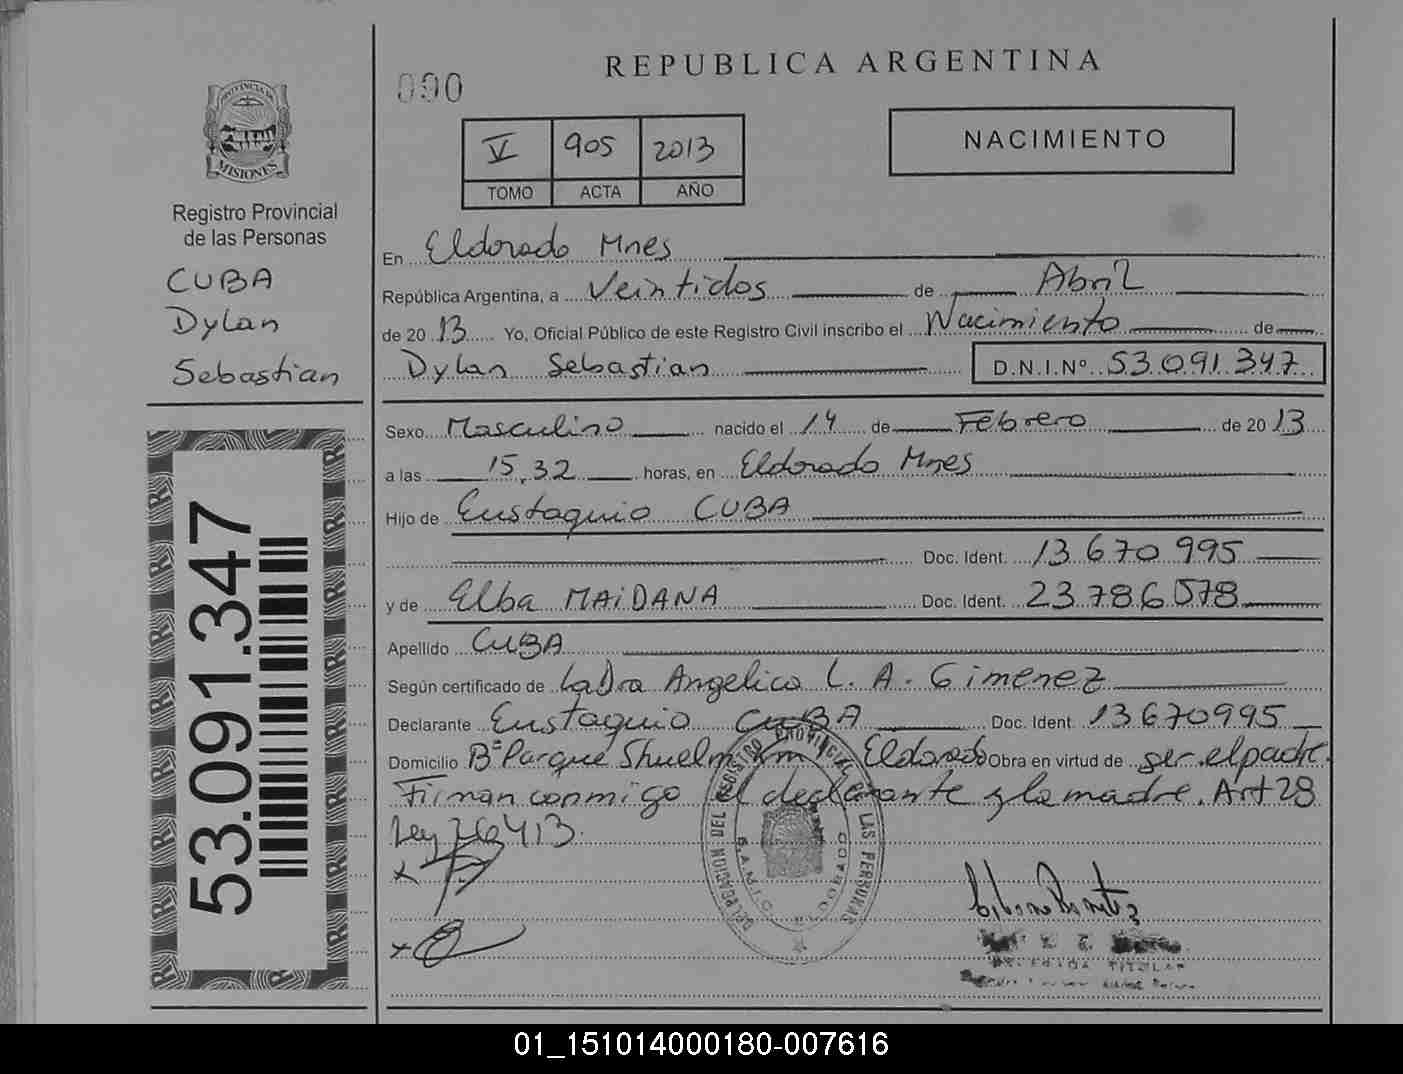 REPUBLICA ARGENTINA
000
NACIMIENTO
V 905 2013
TOMO ACTA AÑO
PROVINCIA DE
MISIONES
Registro Provincial
de las Personas
CUBA
Dylan
Sebastian
53.091.347
En Eldorado Mnes
República Argentina, a Veintidos de Abril
de 20 13 Yo, Oficial Público de este Registro Civil inscribo el Nacimiento de
Dylan Sebastian D.N.I.Nº 53.091.347
Sexo Masculino nacido el 14 de Febrero de 20 13
a las 15,32 horas, en Eldorado Mnes
Hijo de Eustaquio CUBA
Doc. Ident. 13.670.995
y de Elba MAIDANA Doc. Ident. 23.786.578
Apellido CUBA
Según certificado de La Dra Angelica L. A. Gimenez
Declarante Eustaquio CUBA Doc. Ident. 13670995
Domicilio Bº Parque Shuelm Km Eldorado Obra en virtud de ser el padre.
Firman conmigo el declarante y la madre. Art 28
Ley 26413.
DELEGACION DEL REGISTRO PROVINCIAL LAS PERSONAS
S.A.M.I.C. ELDORADO
TITULAR
01_151014000180-007616